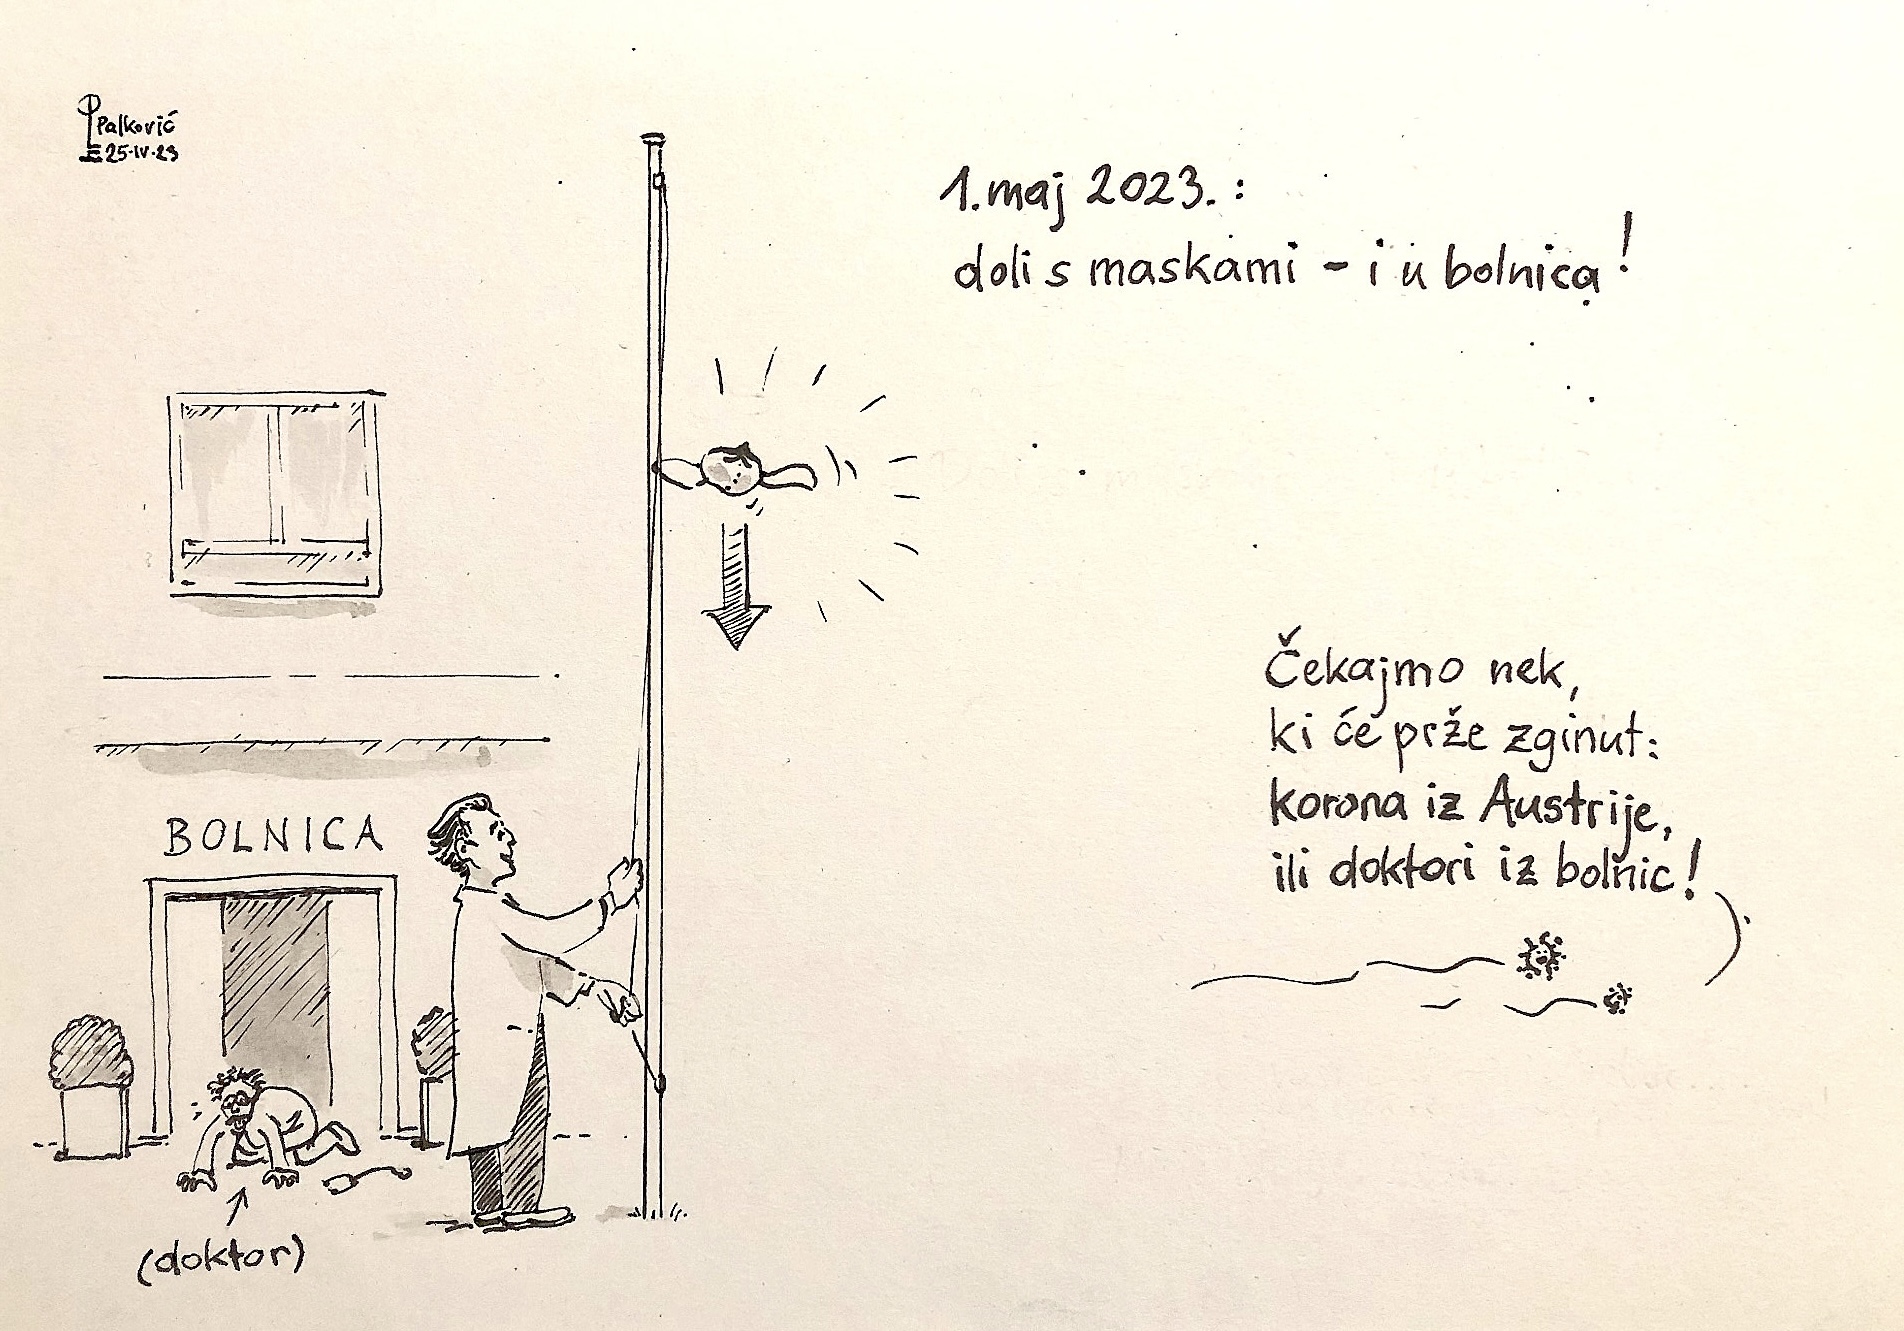 Palković
25-IV-23
1. maj 2023. :
doli s maskami – i u bolnica !
Čekajmo nek,
ki će prže zginut:
korona iz Austrije,
ili doktori iz bolnic !
BOLNICA
(doktor)